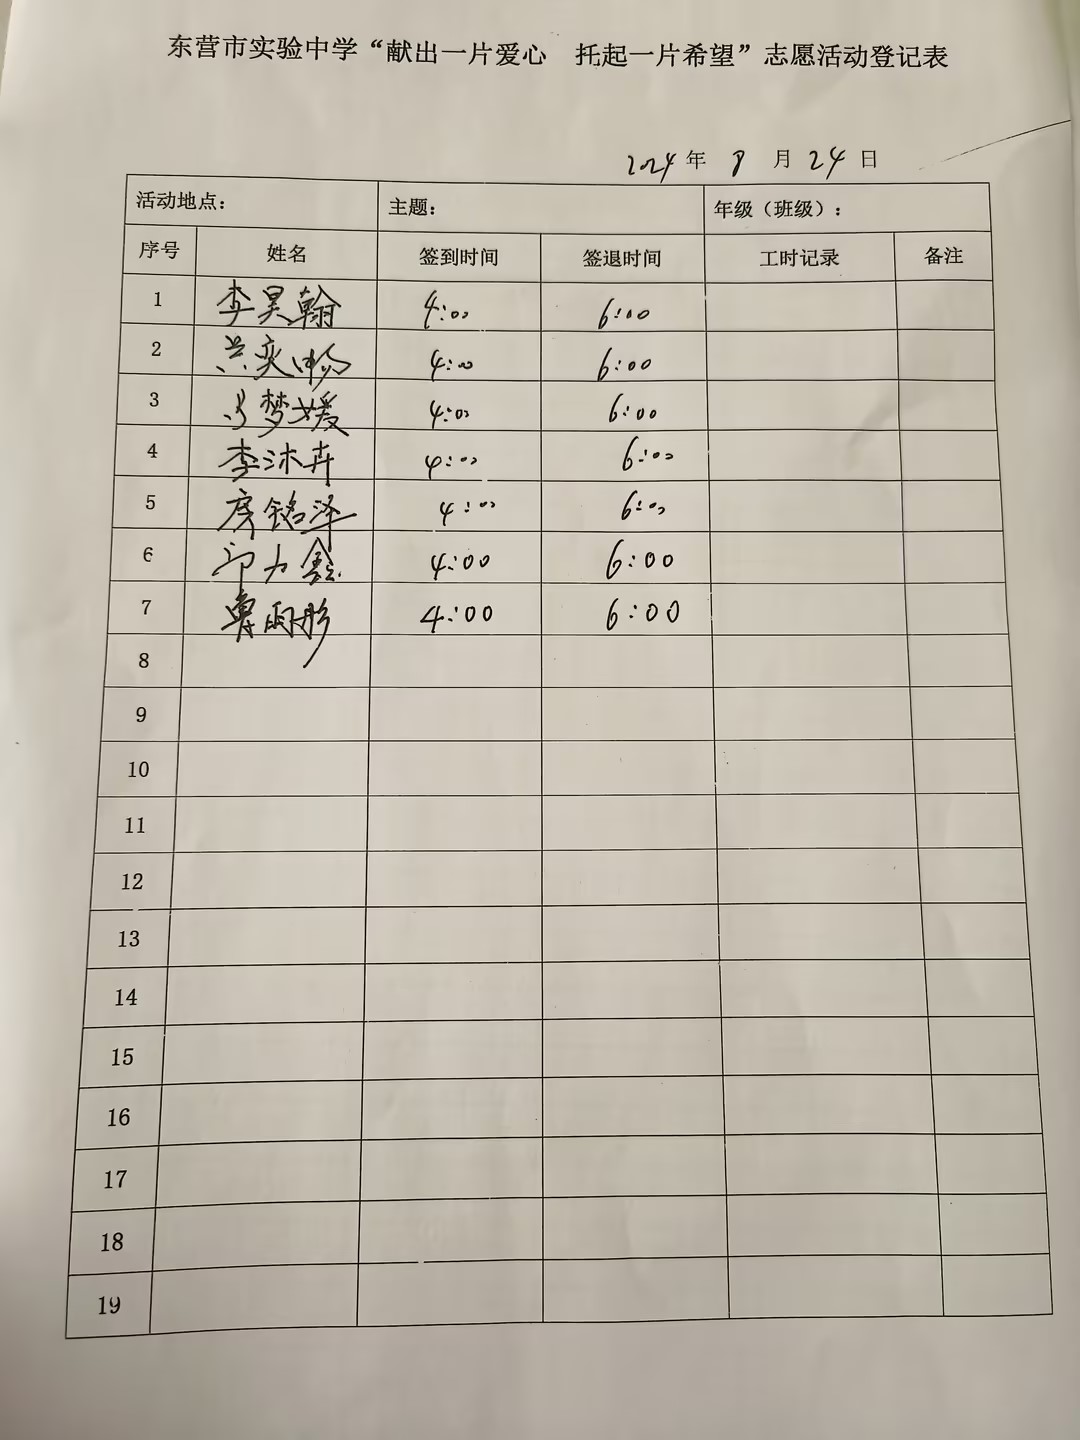 东营市实验中学“献出一片爱心 托起一片希望”志愿活动登记表
2024年 8月 24日
活动地点: 主题: 年级（班级）:
序号 姓名 签到时间 签退时间 工时记录 备注
1 李昊翰 4:00 6:00
2 奕畅 4:00 6:00
3 梦媛 4:00 6:00
4 李沐卉 4:00 6:00
5 房铭泽 4:00 6:00
6 力鑫 4:00 6:00
7 鲁雨彤 4:00 6:00
8
9
10
11
12
13
14
15
16
17
18
19